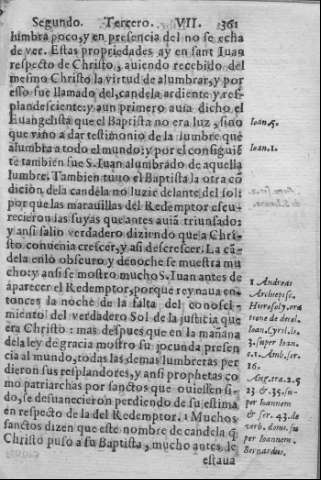 Segundo. Tercero. VII. 361
lumbra poco, y en presencia del no se echa
de ver. Estas propiedades ay en sant Iuan
respecto de Christo, auiendo recebido del
mesmo Christo la virtud de alumbrar, y por
esso fue llamado del, candela ardiente y res-
plandesciente: y aun primero auia dicho el
Euangelista que el Baptista no era luz, sino
que vino a dar testimonio de la lumbre que
alumbra a todo el mundo: y por el consiguiẽ
te tambien fue S. Iuan alumbrado de aquella
lumbre. Tambien tuuo el Baptista la otra cõ
dicion de la candela no luzir delante del sol:
por que las marauillas del Redemptor escu-
recieron las suyas que antes auiã triunfado:
y ansi salio verdadero diziendo que a Chri-
sto conuenia crescer, y asi descrescer. La cã-
dela en lo obscuro y de noche se muestra mu
cho: y ansi se mostro mucho S. Iuan antes de
aparecer el Redemptor, porque reynaua en-
tonces la noche de la falta del conosci-
miento del verdadero Sol de la justicia que
era Christo: mas despues que en la mañana
de la ley de gracia mostro su jocunda presen
cia al mundo, todas las demas lumbreras per
dieron sus resplandores, y ansi prophetas co
mo patriarchas por sanctos que ouiessen si-
do, se desuanecieron perdiendo de su estima
en respecto de la del Redemptor. 1 Muchos
sanctos dizen que este nombre de candela q̃
Christo puso a su Baptista, mucho antes le
estaua
Ioan. 5.
Ioan. 1.
1 Andreas
Archiepisc.
Hierosoly. ora
tione de decol.
Ioan. Cyril. li.
3. super Ioan.
c. 1. Amb. ser.
16.
Aug. tra. 2. 5
23 & 35. su-
per Ioannem
& ser. 43. de
verb. domi. su
per Ioannem.
Bernardus.